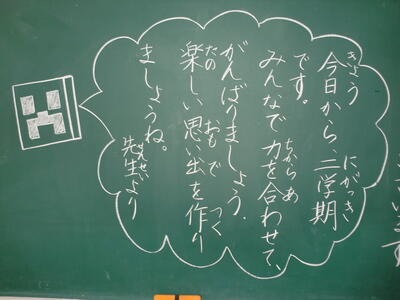 今日から、二学期
です。
みんなで力を合わせて、
がんばりましょう。
楽しい思い出を作り
ましょうね。
先生より
きょう
にがっき
ちから あ
たの おも で つく
せんせい